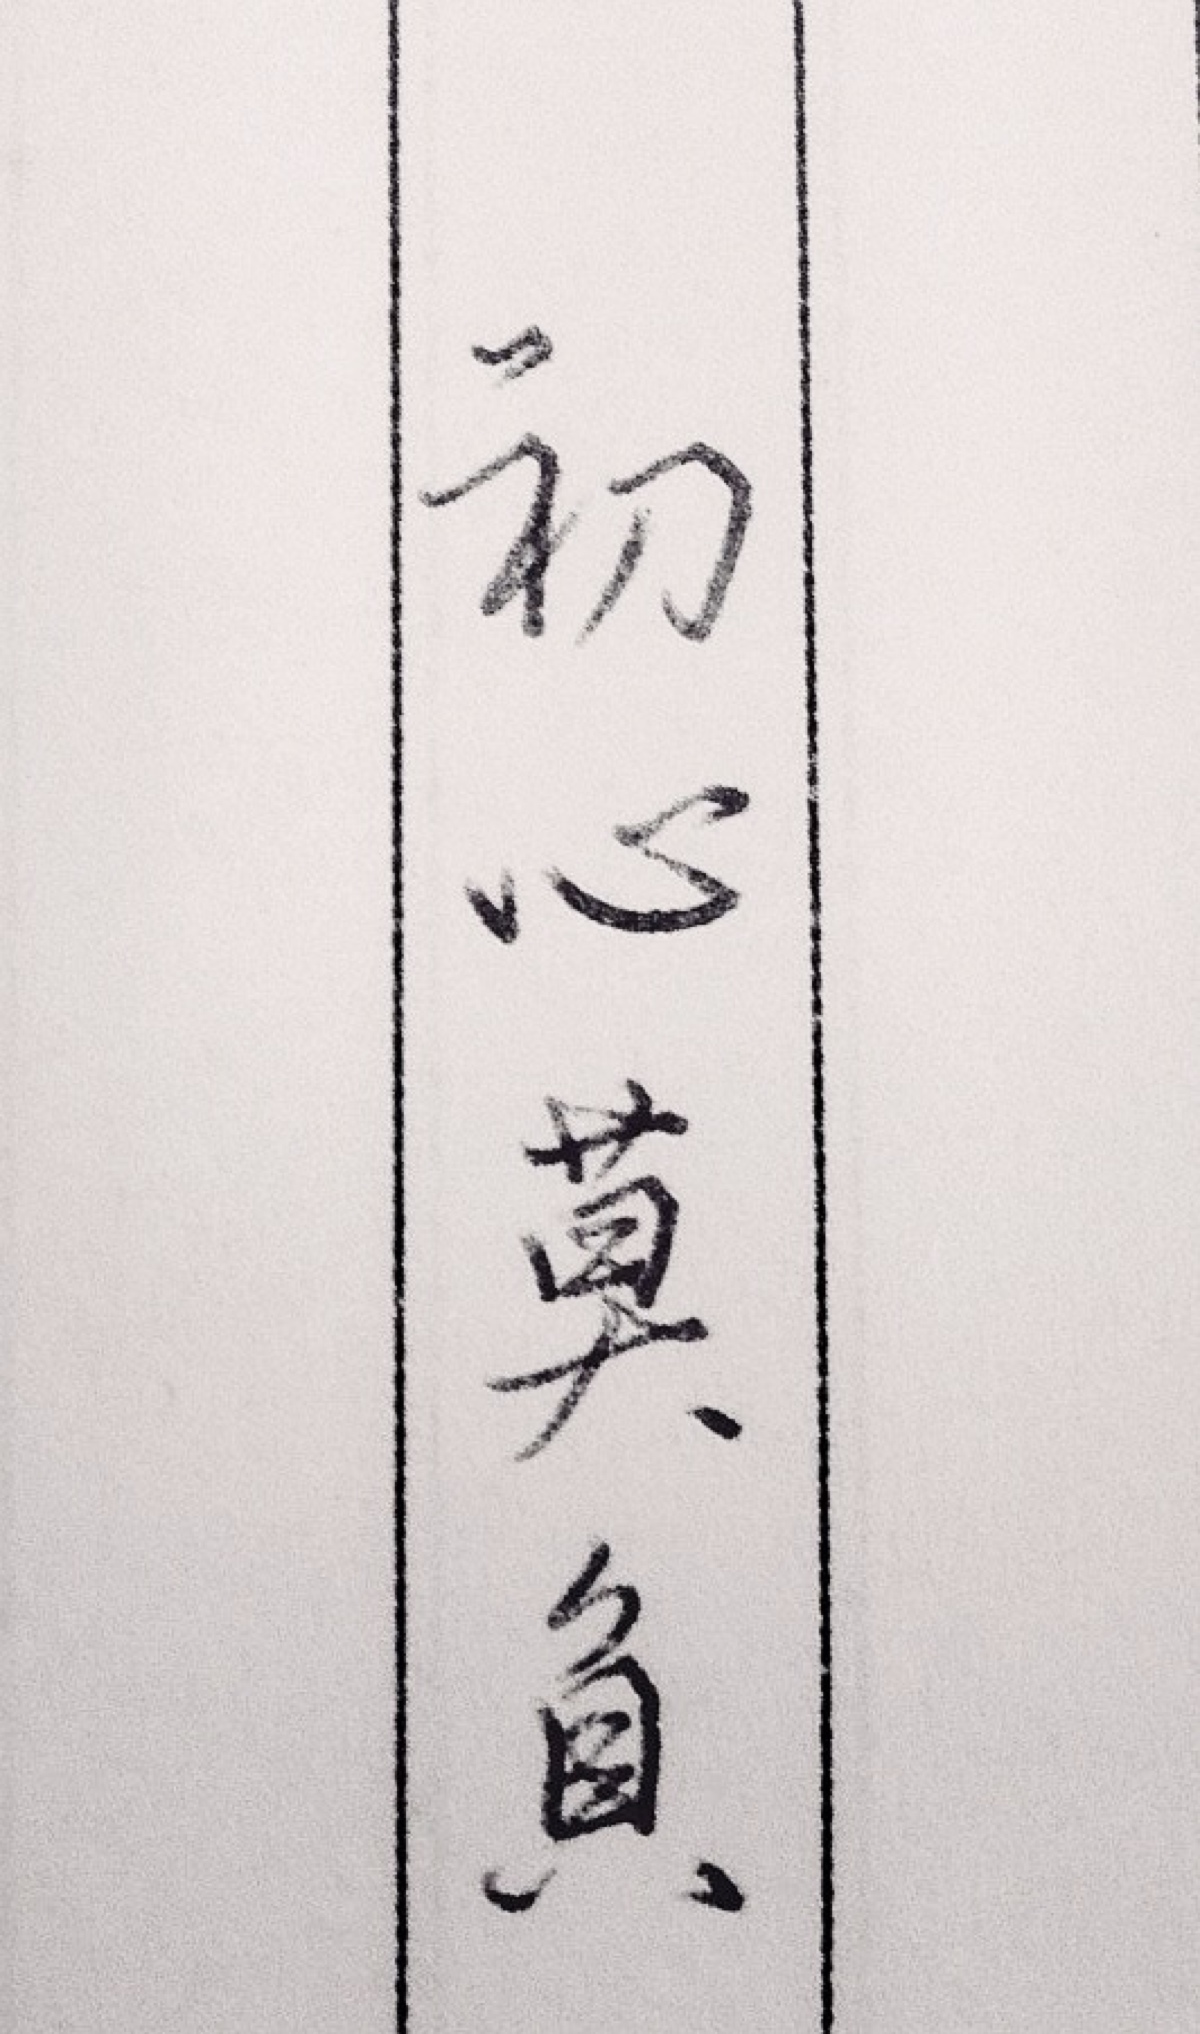 初心莫負